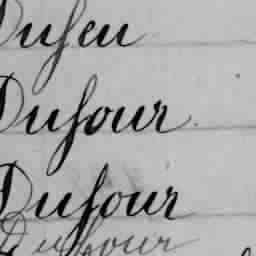 Dufeu
Dufour
Dufour
Dufour